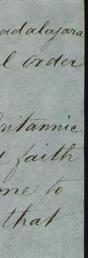 adalajara
l order
ritannic
faith
me to
that